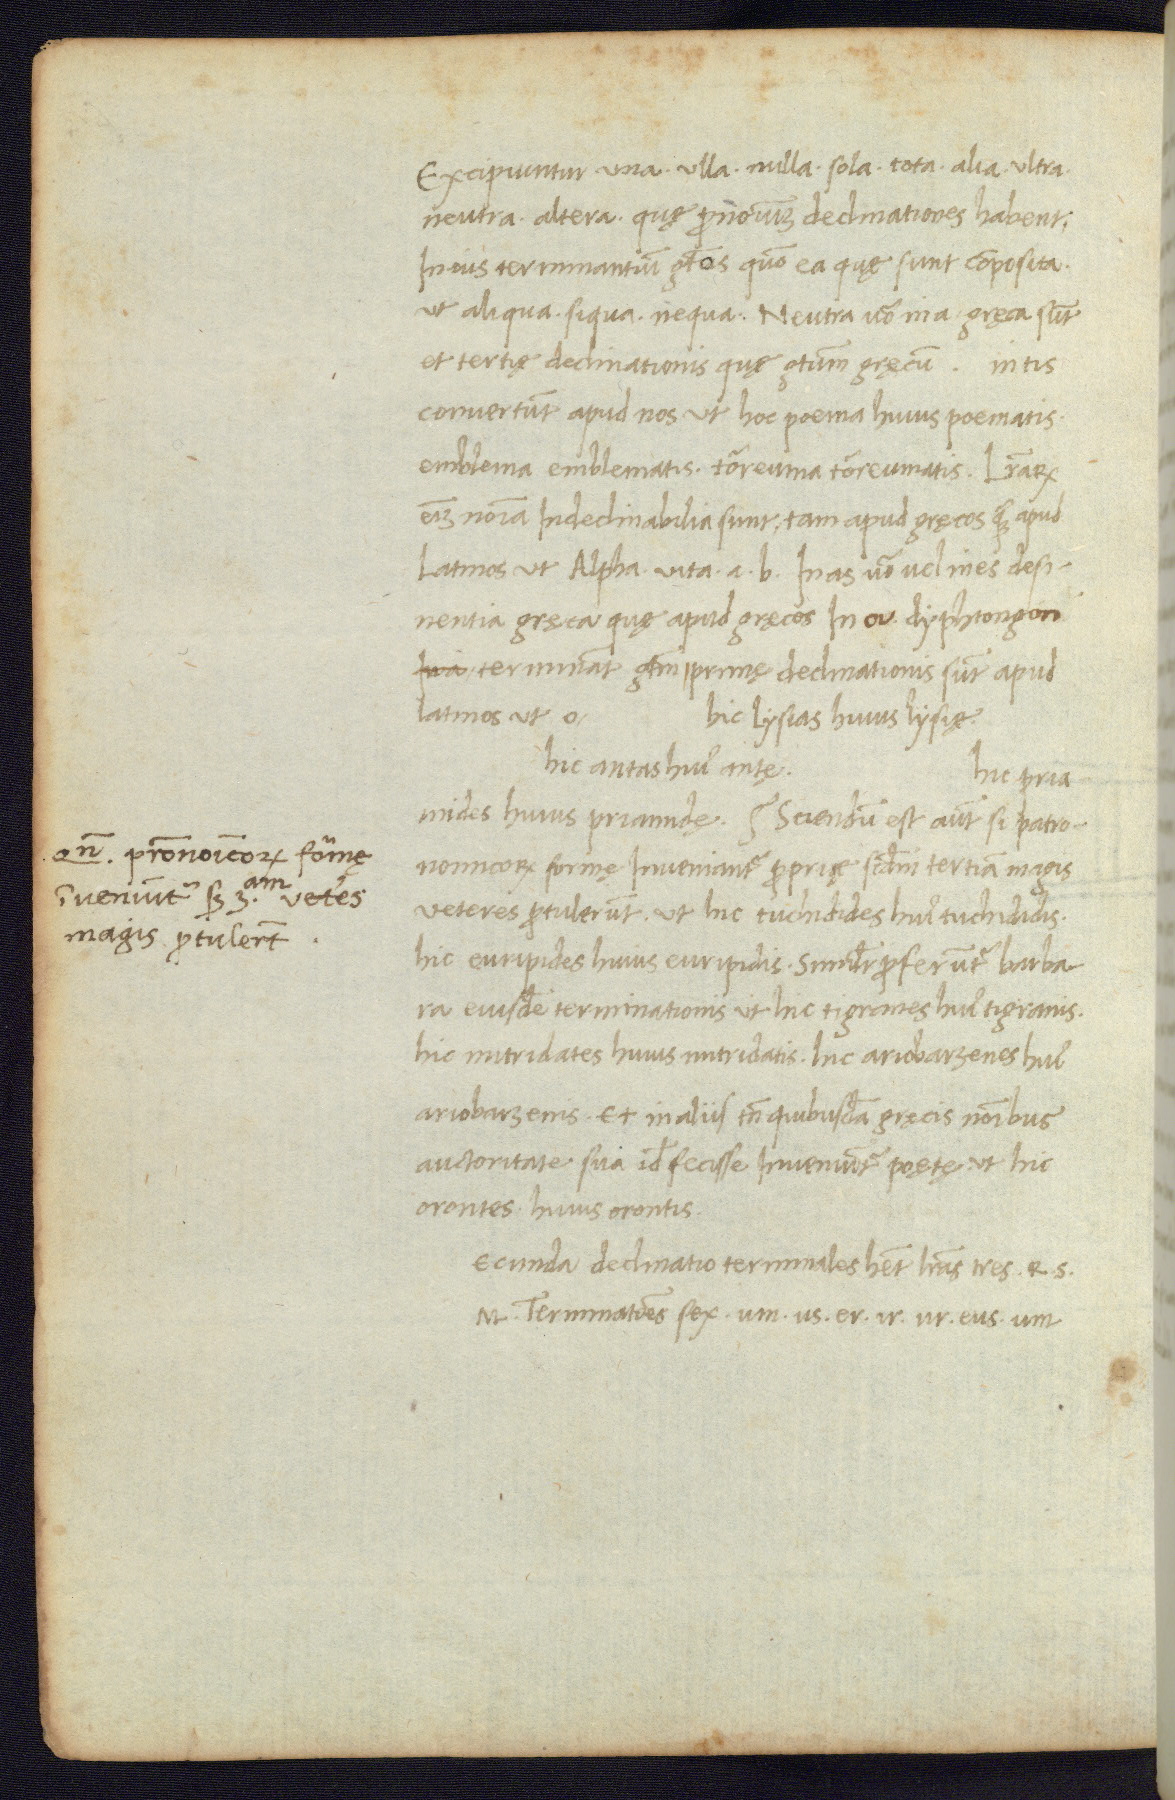 Excipiuntur una. ulla. nulla. sola. tota. alia. ultra.
neutra. altera. quę p̄noīuȝ declinationes habent;
In ius terminantiū gt̄os quō ea quę sunt cōposita.
ut aliqua. siqua. nequa. Neutra uō in a gręca sūt
et tertię declinationis quę gtūm gręcū. in tis
conuertūt apud nos ut hoc poema huius poematis.
emblema emblematis. tōreuma tōreumatis. Lr̄aꝝ
eīȝ noīa Indeclinabilia sunt, tam apud gręcos ꝙ̄ apud
Latinos ut Alpha. uita. a. b. In as uō uel in es desi-
nentia gręca quę apud gręcos In ου dyphtongon
termināt gtm̄ primę declinationis sūt apud
latinos ut o hic lysias huius lysię.
hic antas huiꝰ antę. hic pria
mides huius priamidę. Sciendū est aūt si patro-
nomicoꝝ formę Inueniant᷑ ꝓprię sd̄m tertiā magis
ueteres ꝓtulerūt. ut hic tuchidides huiꝰ tuchididis.
hic euripides huius euripidis. Simlr̄ ꝓferūt᷑ barba
ra eiusdē terminationis ut hic tigranes huiꝰ tigranis.
hic mitridates huius mitridatis. hic ariobarzenes huiꝰ
ariobarzenis. Et in aliis tn̄ quibusdā gręcis noībus
auctoritate sua id fecisse Inueniūt᷑ poętę ut hic
orontes huius orontis.
ecunda declinatio terminales hēt lr̄as tres. R. S.
M. Terminatōes sex. um. us. er. ir. ur. eus. um
qn̄. pr̄onoīcoꝝ fōmę
īueniūt᷑ sȝ 3.am vet̄es
magis ꝓtulerūt.